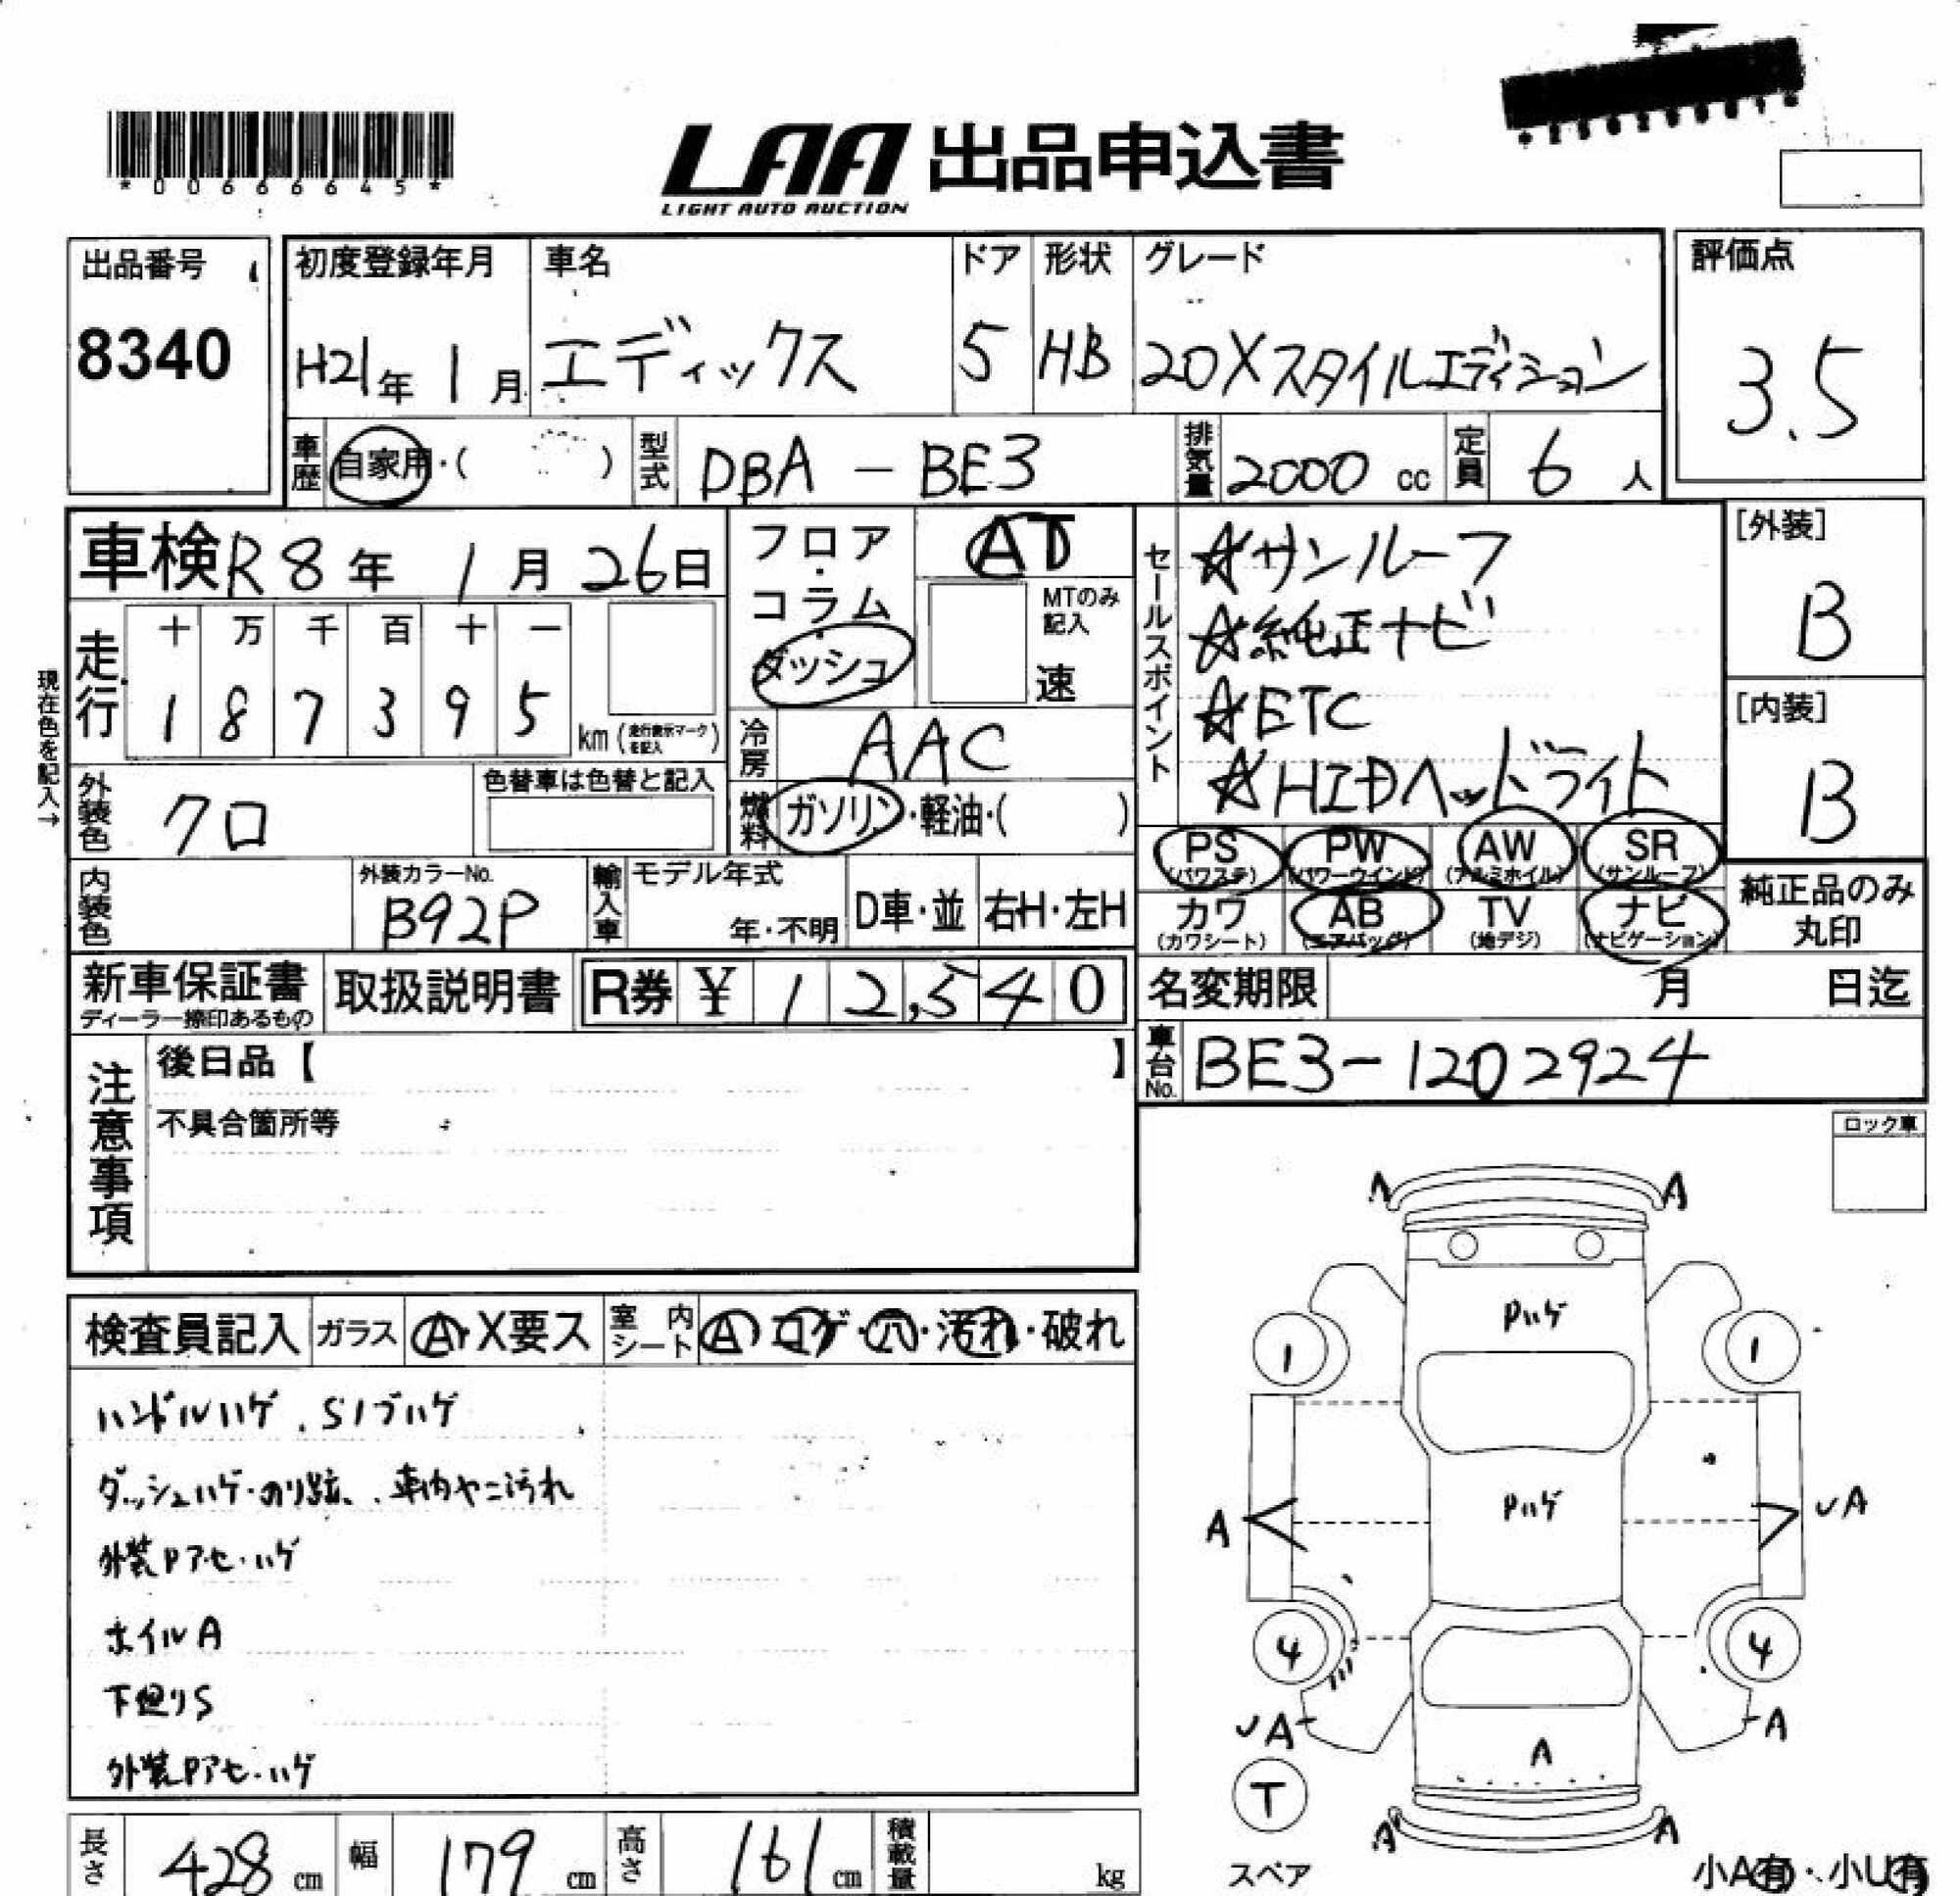 *00666645*
LAA 出品申込書
LIGHT AUTO AUCTION
出品番号
8340
初度登録年月
H21年 1月
車名
エディックス
ドア
5
形状
HB
グレード
20Xスタイルエディション
評価点
3.5
車歴 自家用・( )
型式 DBA - BE3
排気量 2000 cc
定員 6 人
車検 R8年 1月 26日
フロア・コラム・ダッシュ
AT
MTのみ記入
速
セールスポイント
☆サンルーフ
☆純正ナビ
☆ETC
☆HIDヘッドライト
[外装]
B
[内装]
B
現在色を記入→
走行
十 万 千 百 十 一
1 8 7 3 9 5
km (走行表示マークを記入)
冷房 AAC
燃料 ガソリン・軽油・( )
外装色 クロ
色替車は色替と記入
PS (パワステ)
PW (パワーウインド)
AW (アルミホイル)
SR (サンルーフ)
カワ (カワシート)
AB (エアバッグ)
TV (地デジ)
ナビ (ナビゲーション)
純正品のみ丸印
内装色
外装カラーNo.
B92P
輸入車
モデル年式
年・不明
D車・並
右H・左H
新車保証書
ディーラー捺印あるもの
取扱説明書
R券 ¥ 12,540
名変期限 月 日迄
車台No. BE3-1202924
注意事項
後日品【 】
不具合箇所等
ロック車
検査員記入
ガラス A・X要ス
室内シート A・コゲ・穴・汚れ・破れ
ハンドルハゲ.Sノブハゲ
ダッシュハゲ・のり跡、.車内ヤニ汚れ
外装Pアセ・ハゲ
ホイルA
下廻りS
外装Pアセ・ハゲ
A A
Pハゲ
1 1
Pハゲ
A
UA
4 4
UA
A
A
T
スペア
A A
小A有・小U有
長さ 428 cm
幅 179 cm
高さ 161 cm
積載量 kg